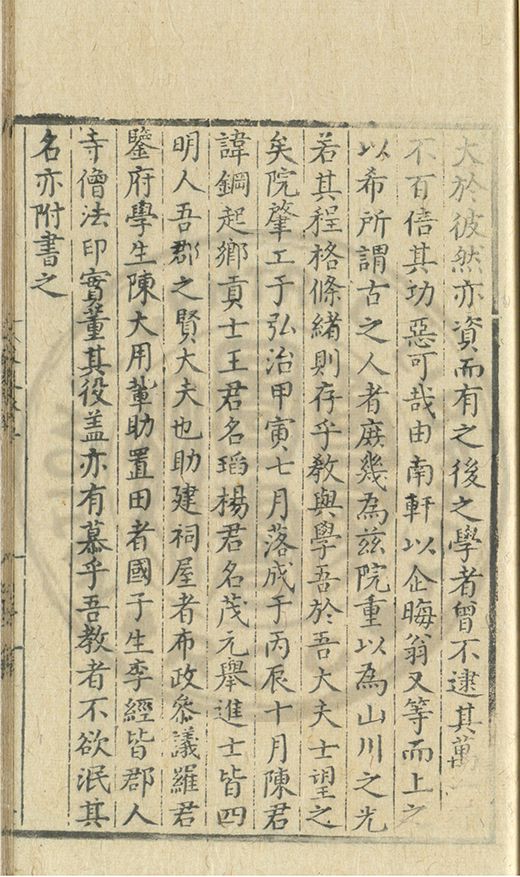 大於彼然亦資而有之後之學者曾不逮其萬一
不百倍其功惡可哉由南軒以企晦翁又等而上之
以希所謂古之人者庶幾為茲院重以為山川之光
若其程格條緒則存乎教與學吾於吾大夫士望之
矣院肇工于弘治甲寅七月落成于丙辰十月陳君
諱鋼起鄉貢士王君名瑫楊君名茂元舉進士皆四
明人吾郡之賢大夫也助建祠屋者布政叅議羅君
鑒府學生陳大用輩助置田者國子生李經皆郡人
寺僧法印實董其役盖亦有慕乎吾教者不欲泯其
名亦附書之